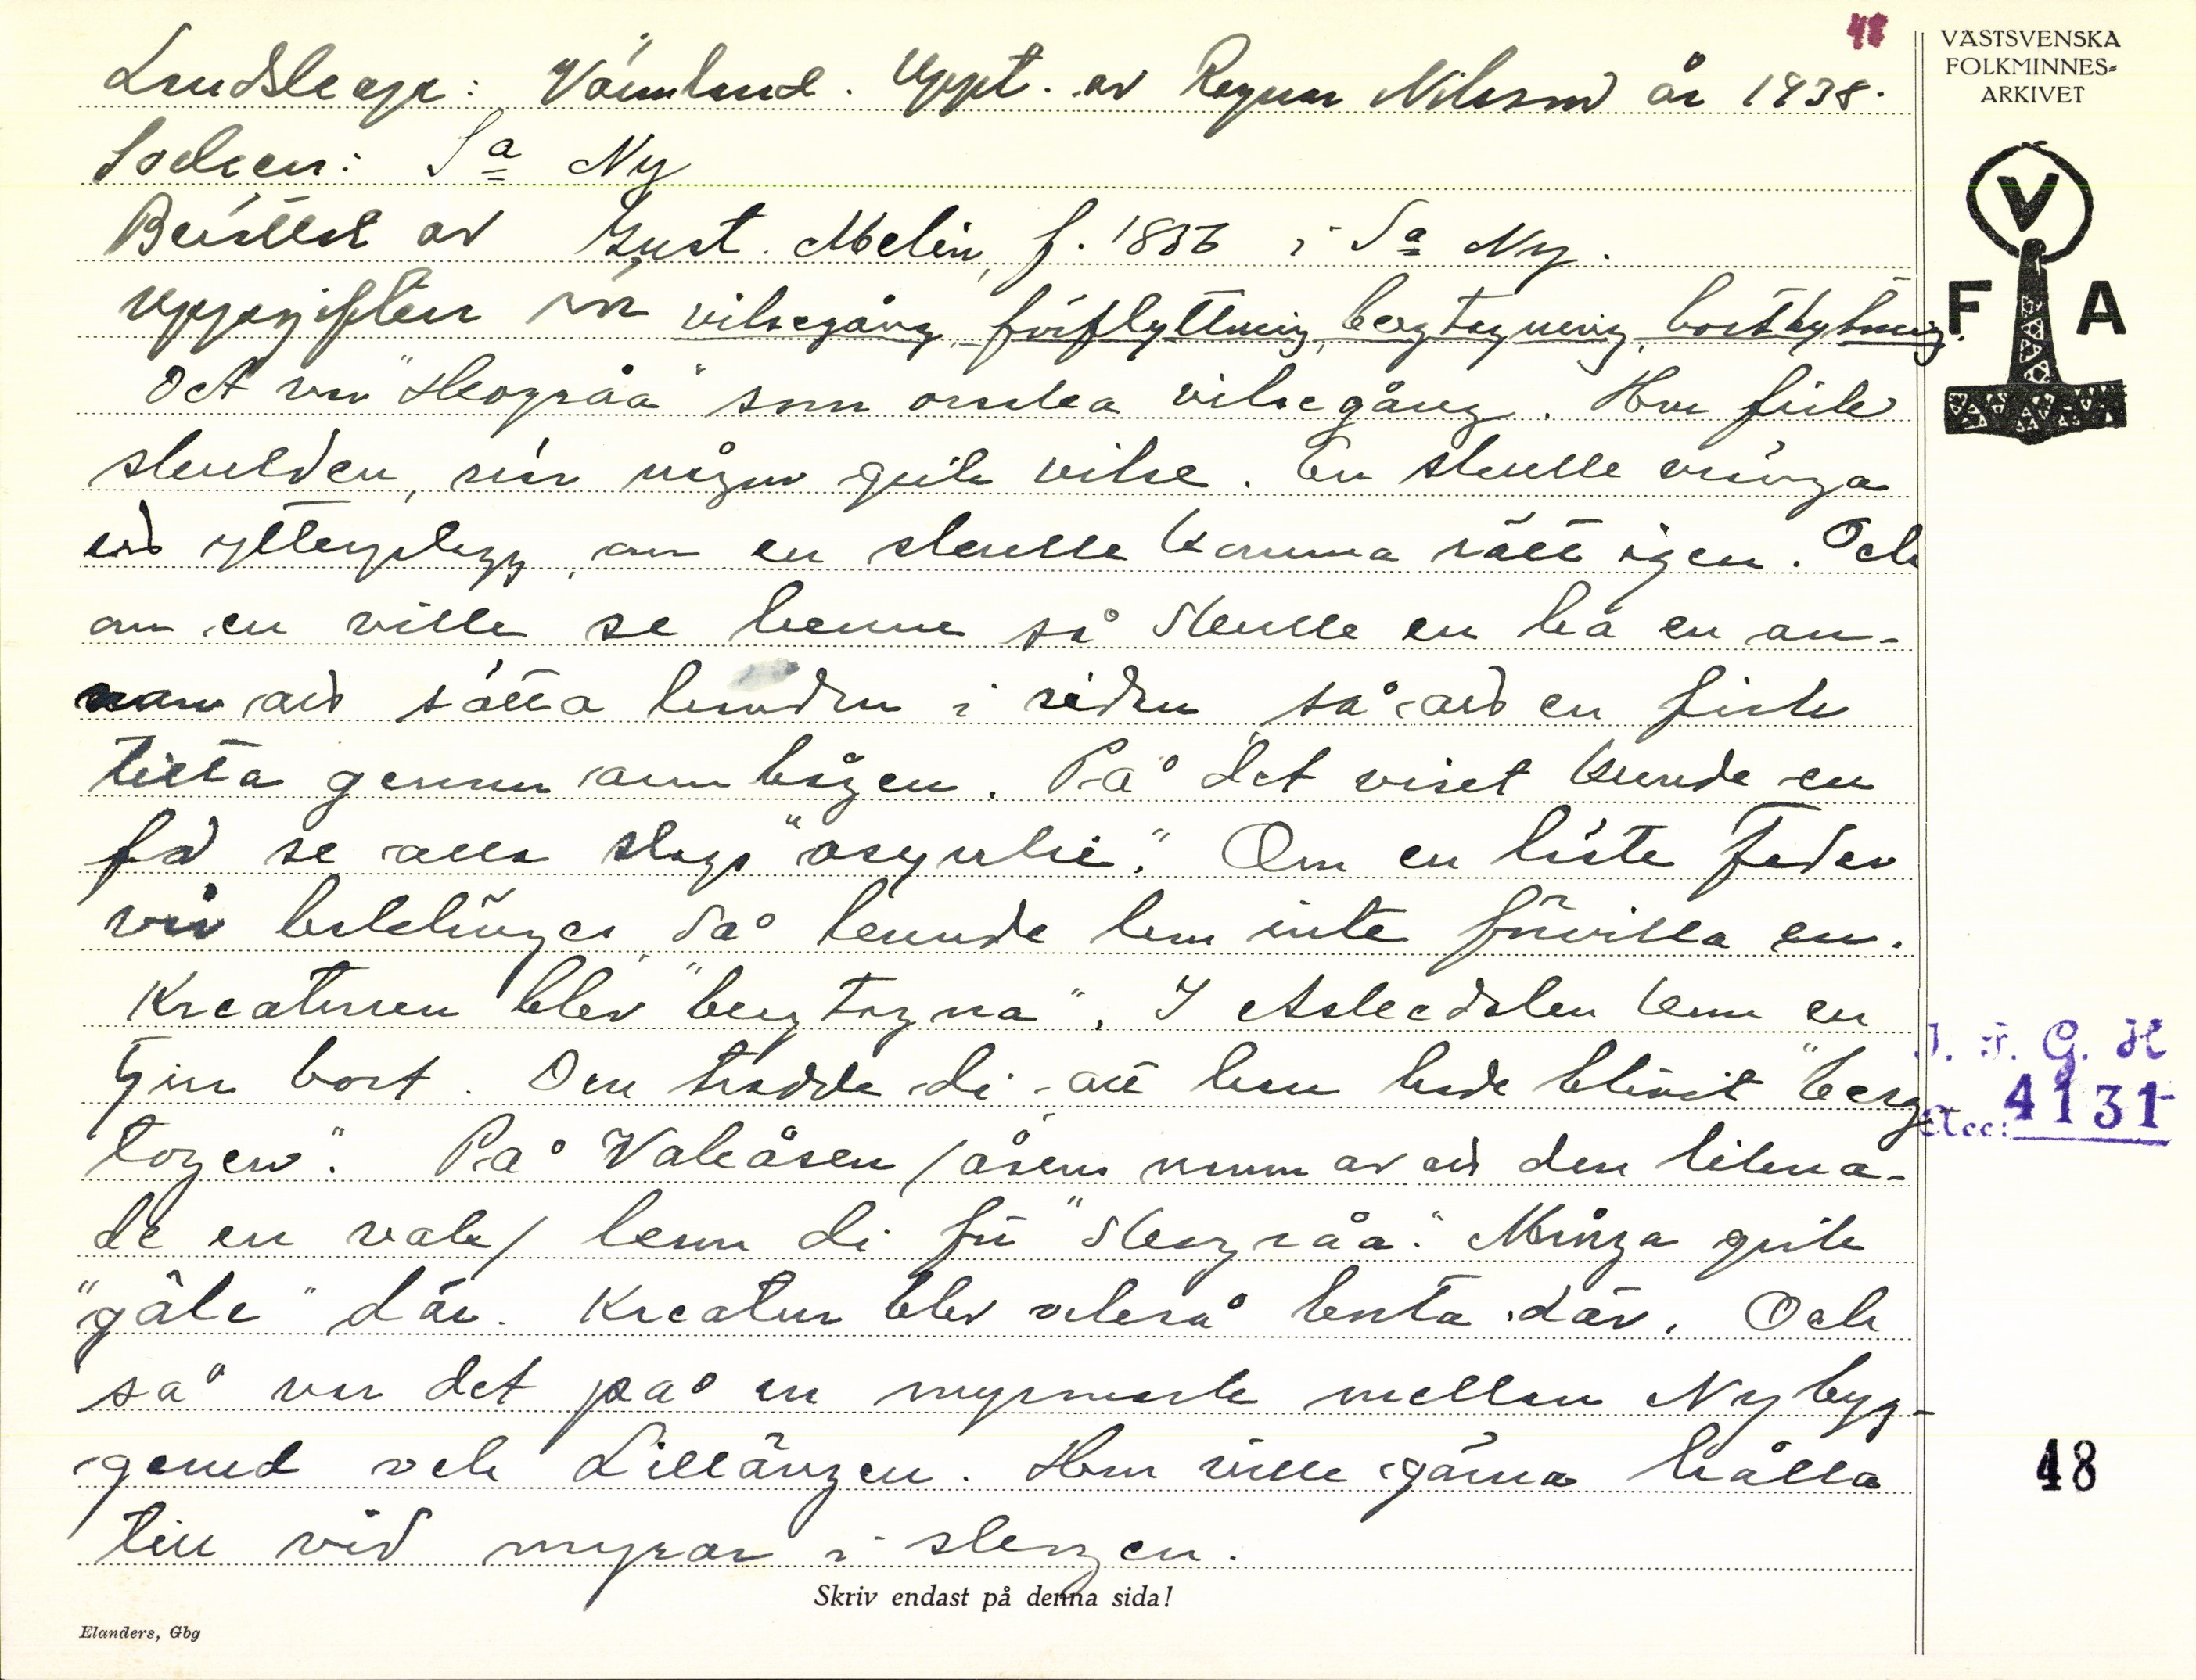 48
Landskap: Värmland. Uppt. av Ragnar Nilsson år 1938.
Socken: Sa Ny
Berättat av Gust. Melin, f. 1856 i Sa Ny.
Uppgifter om vilsegång, förflyttning, bergtagning, bortbytning.
Det var "skogsråa" som orsaka vilsegång. Hon fick
skulden, när någon gick vilse. En skulle vränga
ett ytterplagg, om en skulle komma rätt igen. Och
om en ville se henne så skulle en ha en an-
nan att sätta handen i sidan så att en fick
titta genom armbågen. På det viset kunde en
få se alla slags "osynlie". Om en läste Fader
vår baklänges, så kunde hon inte förvilla en.
Kreaturen blev "bergtagna". I Askedalen kom en
tjur bort. Den trodde di att han hade blivit "berg
tagen". På Valeåsen /åsens namn av att den likna-
de en vale/ kom di för "skogsråa". Många gick
"gäle" där. Kreatur blev också borta där. Och
så var det på en myrmark mellan Nybyg-
gena och Lillängen. Hon ville gärna hålla
till vid myrar i skogen.
Skriv endast på denna sida!
Elanders, Gbg
VÄSTSVENSKA
FOLKMINNES-
ARKIVET
V
F A
I. F. G. H
Acc: 4131
48